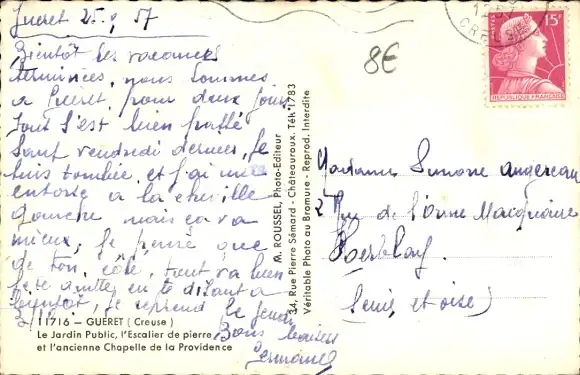 Guéret 25.9.57
Bientôt les vacances
terminées, nous sommes
a Guéret, pour deux jours
tout s'est bien passé
sauf vendredi dernier, je
suis tombée et j'ai une
entorse a la cheville
gauche mais ça va
mieux, je pense que
de ton côté, tout va bien
je te quitte, en te disant a
bientôt, je reprend le jeudi
3/10
Bons baisers
Germaine
11716 – GUERET (Creuse)
Le Jardin Public, l'Escalier de pierre
et l'ancienne Chapelle de la Providence
M. ROUSSEL, Photo-Editeur
34, Rue Pierre Sémard - Châteauroux. Tél. 1783
Véritable Photo au Bromure - Reprod. Interdite
8€
15F
POSTES
REPUBLIQUE FRANÇAISE
Madame Simone
2 Rue de l'Orme Macquaire
Herblay
(Seine et oise)